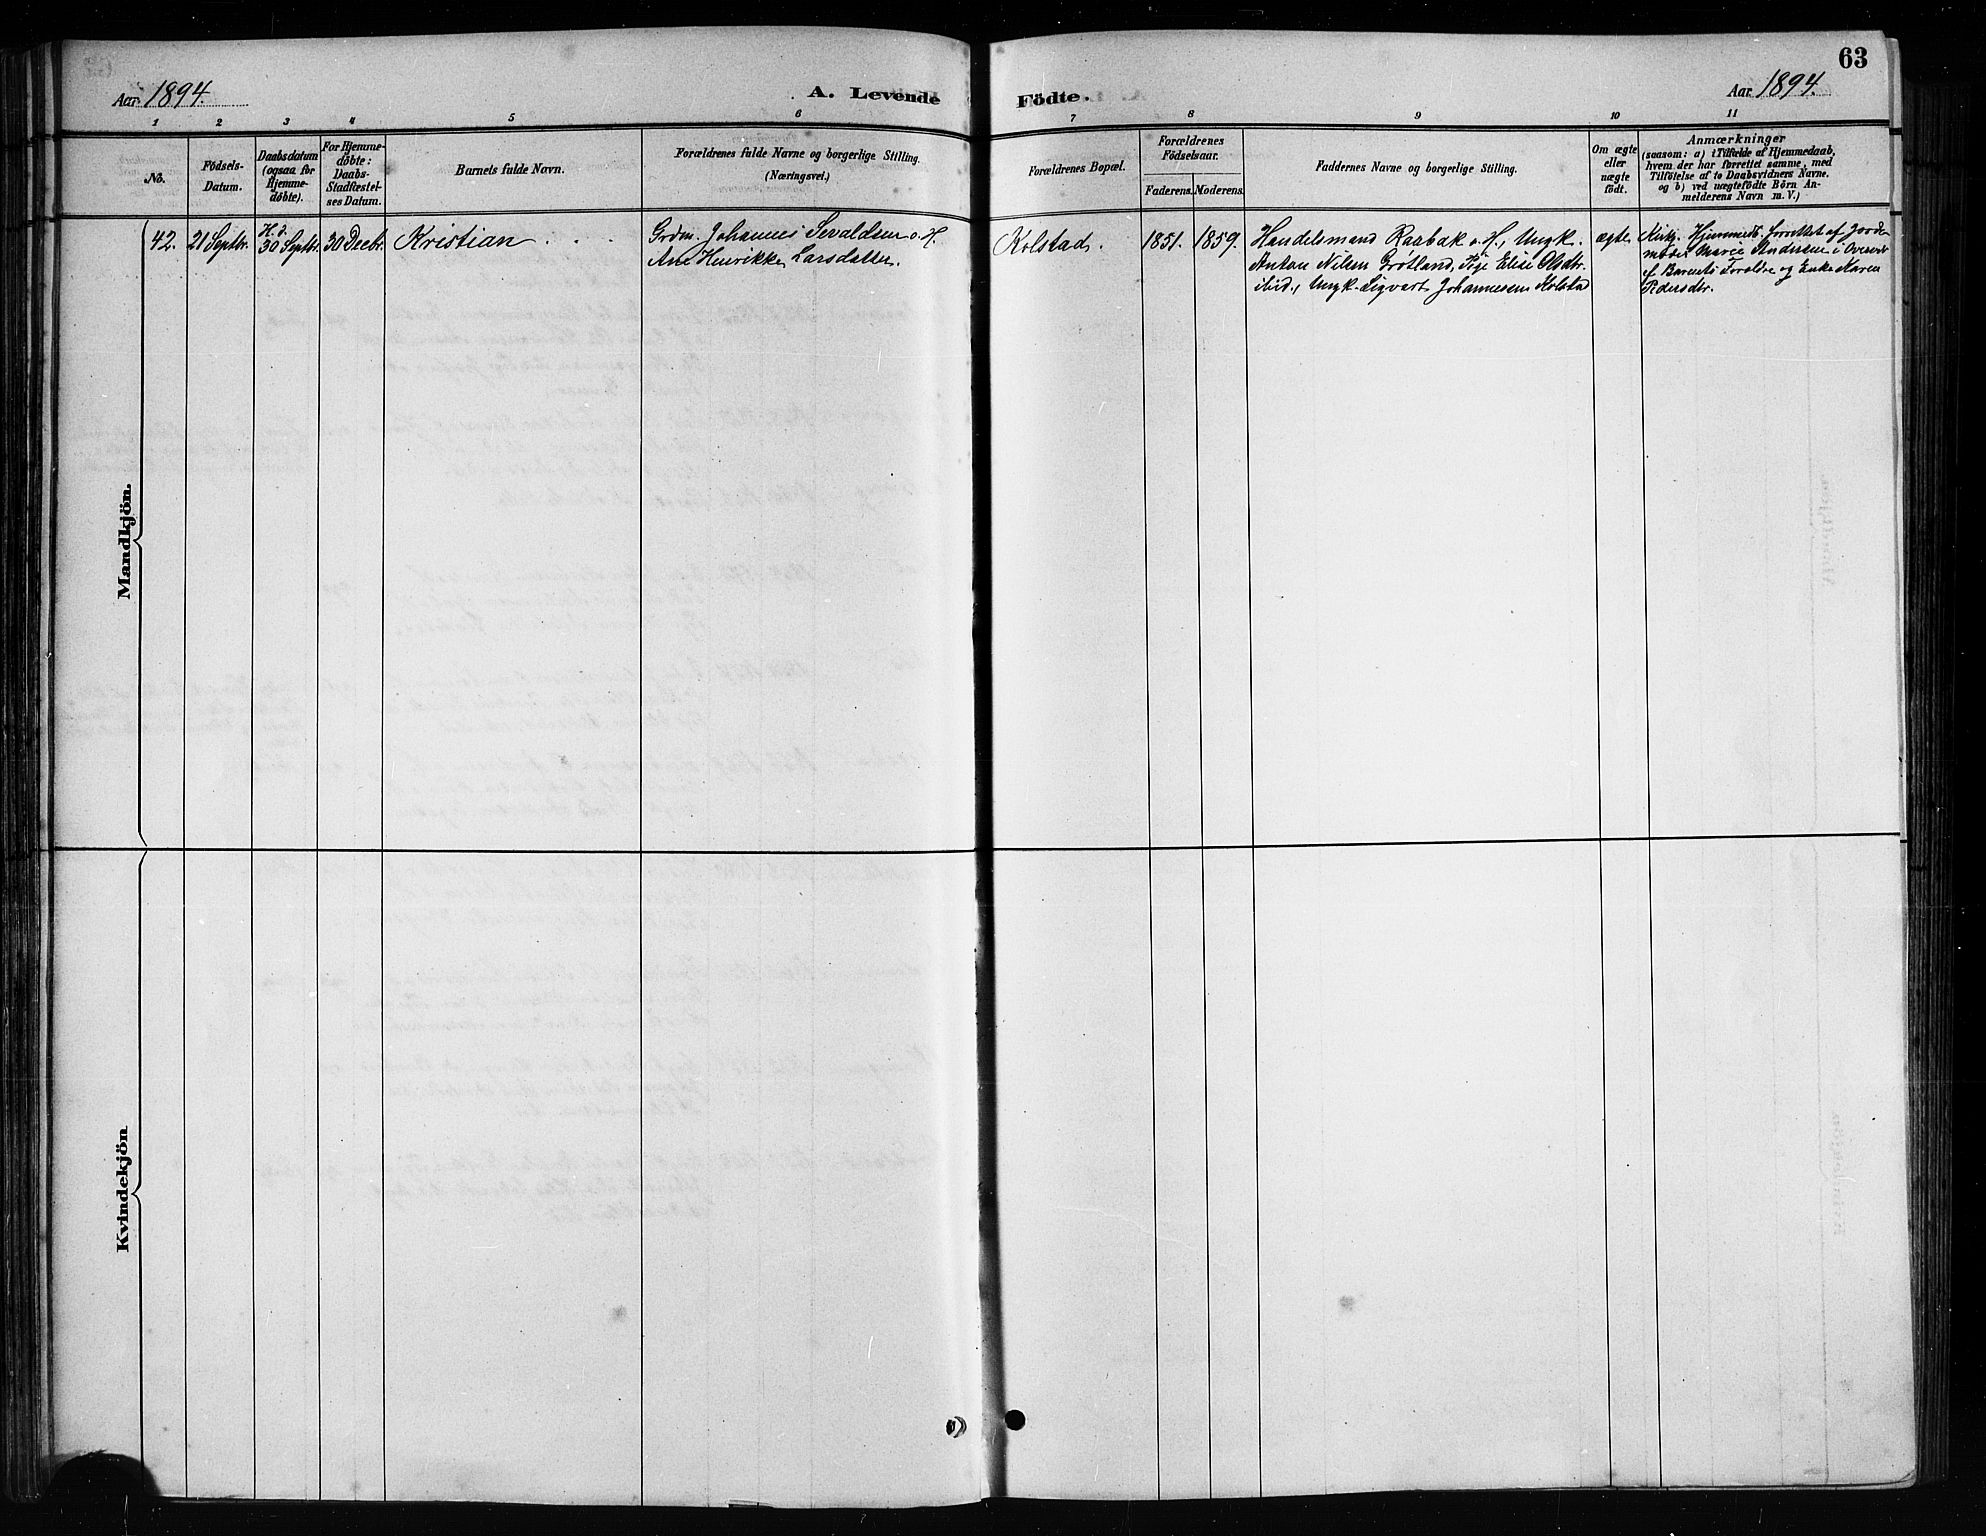 63
Aar. 1894.
A. Levende Födte.
Aar. 1894.
1 2 3 4 5 6 7 8 9 10 11
No.
Födsels-
Datum.
Daabsdatum
(ogsaa for
Hjemme-
døbte).
For Hjemme-
døbte:
Daabs-
Stadfæstel-
ses Datum.
Barnets fulde Navn.
Forældrenes fulde Navne og borgerlige Stilling.
(Næringsvei.)
Forældrenes Bopæl.
Forældrenes
Födselsaar.
Faderens. Moderens.
Faddernes Navne og borgerlige Stilling.
Om ægte
eller
uægte
födt.
Anmærkninger
(saasom: a) i Tilfælde af Hjemmedaab,
hvem der har forrettet samme, med
Tilføielse af to Daabsvidners Navne.
og b) ved uægtefödte Börn An-
melderens Navn m. V.)
Mandkjön.
42.
21 Septbr.
H. d.
30 Septbr.
30 Decbr.
Kristian
Grdm. Johannes Sevaldsen o. H.
Ane Henrikke Larsdatter.
Kolstad.
1851.
1859.
Handelsmand Raabak o. H., Ungk.
Anton Nilsen Grøtland, Pige Elise Olsdtr.
ibid., Ungk. Sigvart Johannesen Kolstad
ægte
Kirkj. Hjemmedb. forrettet af Jorde
moder Marie Andersen i Overvær
af Barnets Forældre og Enke Karen
Pedersdtr.
Kvindekjön